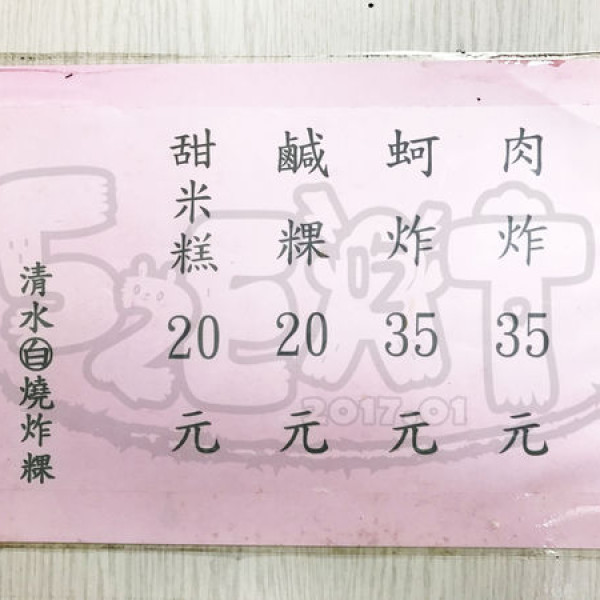 肉炸35元
蚵炸35元
鹹粿20元
甜米糕20元
清水白燒炸粿
2017.01